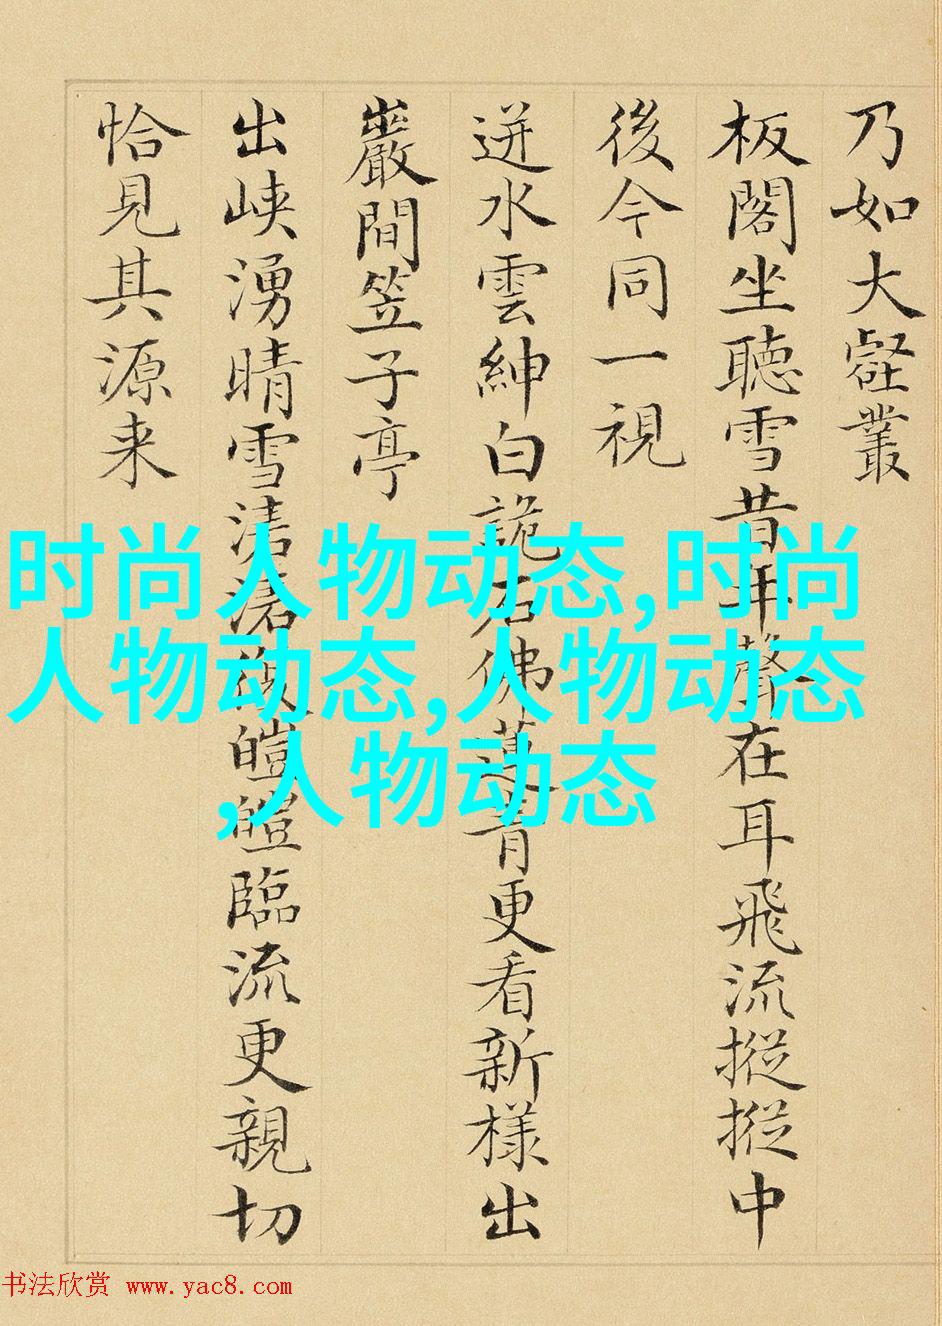 乃如大壑叢
板閣坐聽雪昔年聲在耳飛流摐摐中
後今同一視
迸水雲紳白詭石佛蓮青更看新樣出
巖間笠子亭
出峡湧晴雪清滄皚皚臨流更親切
恰見其源来
时尚人物动态,时尚
人物动态,人物动态
,人物动态
书法欣赏 www.yac8.com